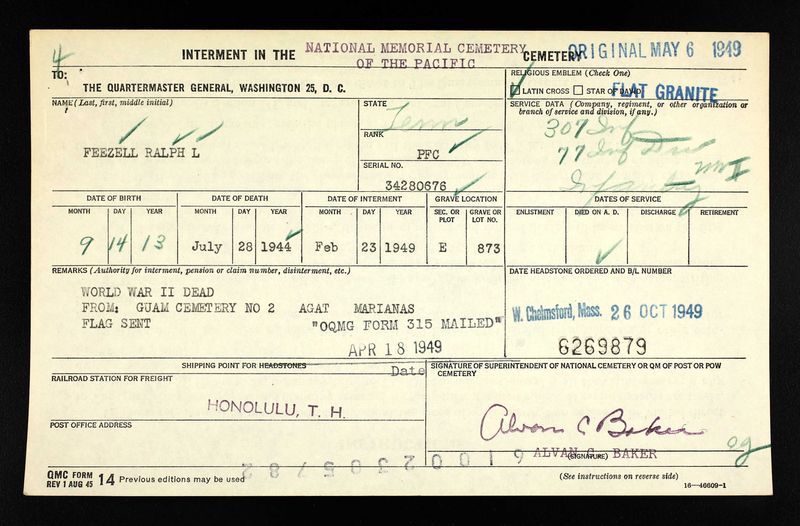 4
INTERMENT IN THE NATIONAL MEMORIAL CEMETERY OF THE PACIFIC CEMETERY
ORIGINAL MAY 6 1949
TO:
THE QUARTERMASTER GENERAL, WASHINGTON 25, D. C.
RELIGIOUS EMBLEM (Check One)
LATIN CROSS STAR OF DAVID
FLAT GRANITE
NAME (Last, first, middle initial)
FEEZELL RALPH L
STATE
Tenn
RANK
PFC
SERIAL NO.
34280676
SERVICE DATA (Company, regiment, or other organization or
branch of service and division, if any.)
307 Inf
77 Inf Div
WW II
Infantry
DATE OF BIRTH DATE OF DEATH DATE OF INTERMENT GRAVE LOCATION DATES OF SERVICE
MONTH DAY YEAR MONTH DAY YEAR MONTH DAY YEAR SEC. OR PLOT GRAVE OR LOT NO. ENLISTMENT DIED ON A. D. DISCHARGE RETIREMENT
9 14 13 July 28 1944 Feb 23 1949 E 873
REMARKS (Authority for interment, pension or claim number, disinterment, etc.)
WORLD WAR II DEAD
FROM: GUAM CEMETERY NO 2 AGAT MARIANAS
FLAG SENT "OQMG FORM 315 MAILED"
APR 18 1949
Date
DATE HEADSTONE ORDERED AND B/L NUMBER
W. Chelmsford, Mass. 26 OCT 1949
6269879
SHIPPING POINT FOR HEADSTONES
RAILROAD STATION FOR FREIGHT
HONOLULU, T. H.
POST OFFICE ADDRESS
SIGNATURE OF SUPERINTENDENT OF NATIONAL CEMETERY OR QM OF POST OR POW
CEMETERY
Alvan C Baker
ALVAN C. BAKER
(SIGNATURE)
og
QMC FORM
REV 1 AUG 45 14 Previous editions may be used
(See instructions on reverse side)
16—46609-1